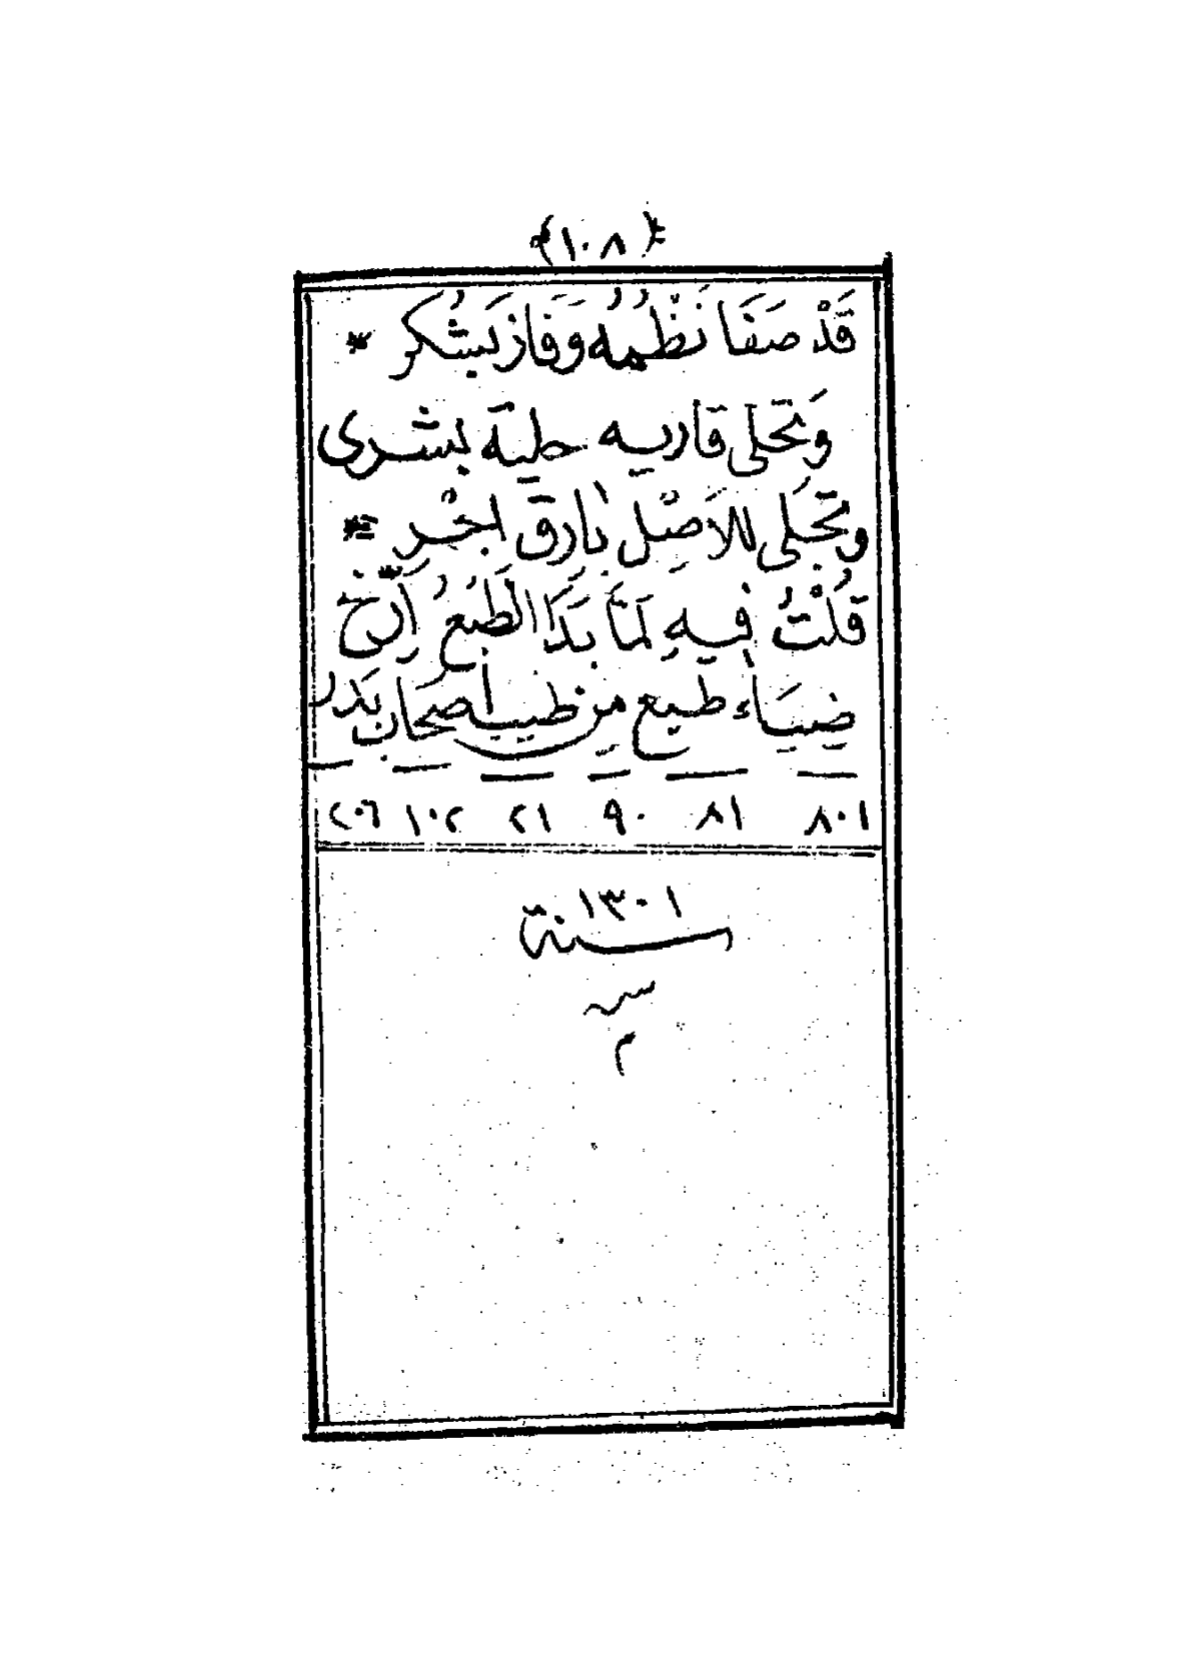 ﴿١٠٨﴾
قَدْ صَفَا نَظْمُهُ وَفَازَ بِشُكْرٍ *
وَتَحَلى قاريه حلية بشرى
وتَجَلى للأَصْلِ بَارِق اجْرٍ *
قُلْتُ فِيهِ لَمَّا بَدَا الطَبْعُ أَرِّخْ
ضِيَاء طبع مِن طيب اصحاب بَدر
٨٠١ ٨١ ٩٠ ٢١ ١٠٢ ٢٠٦
١٣٠١
سنة
م